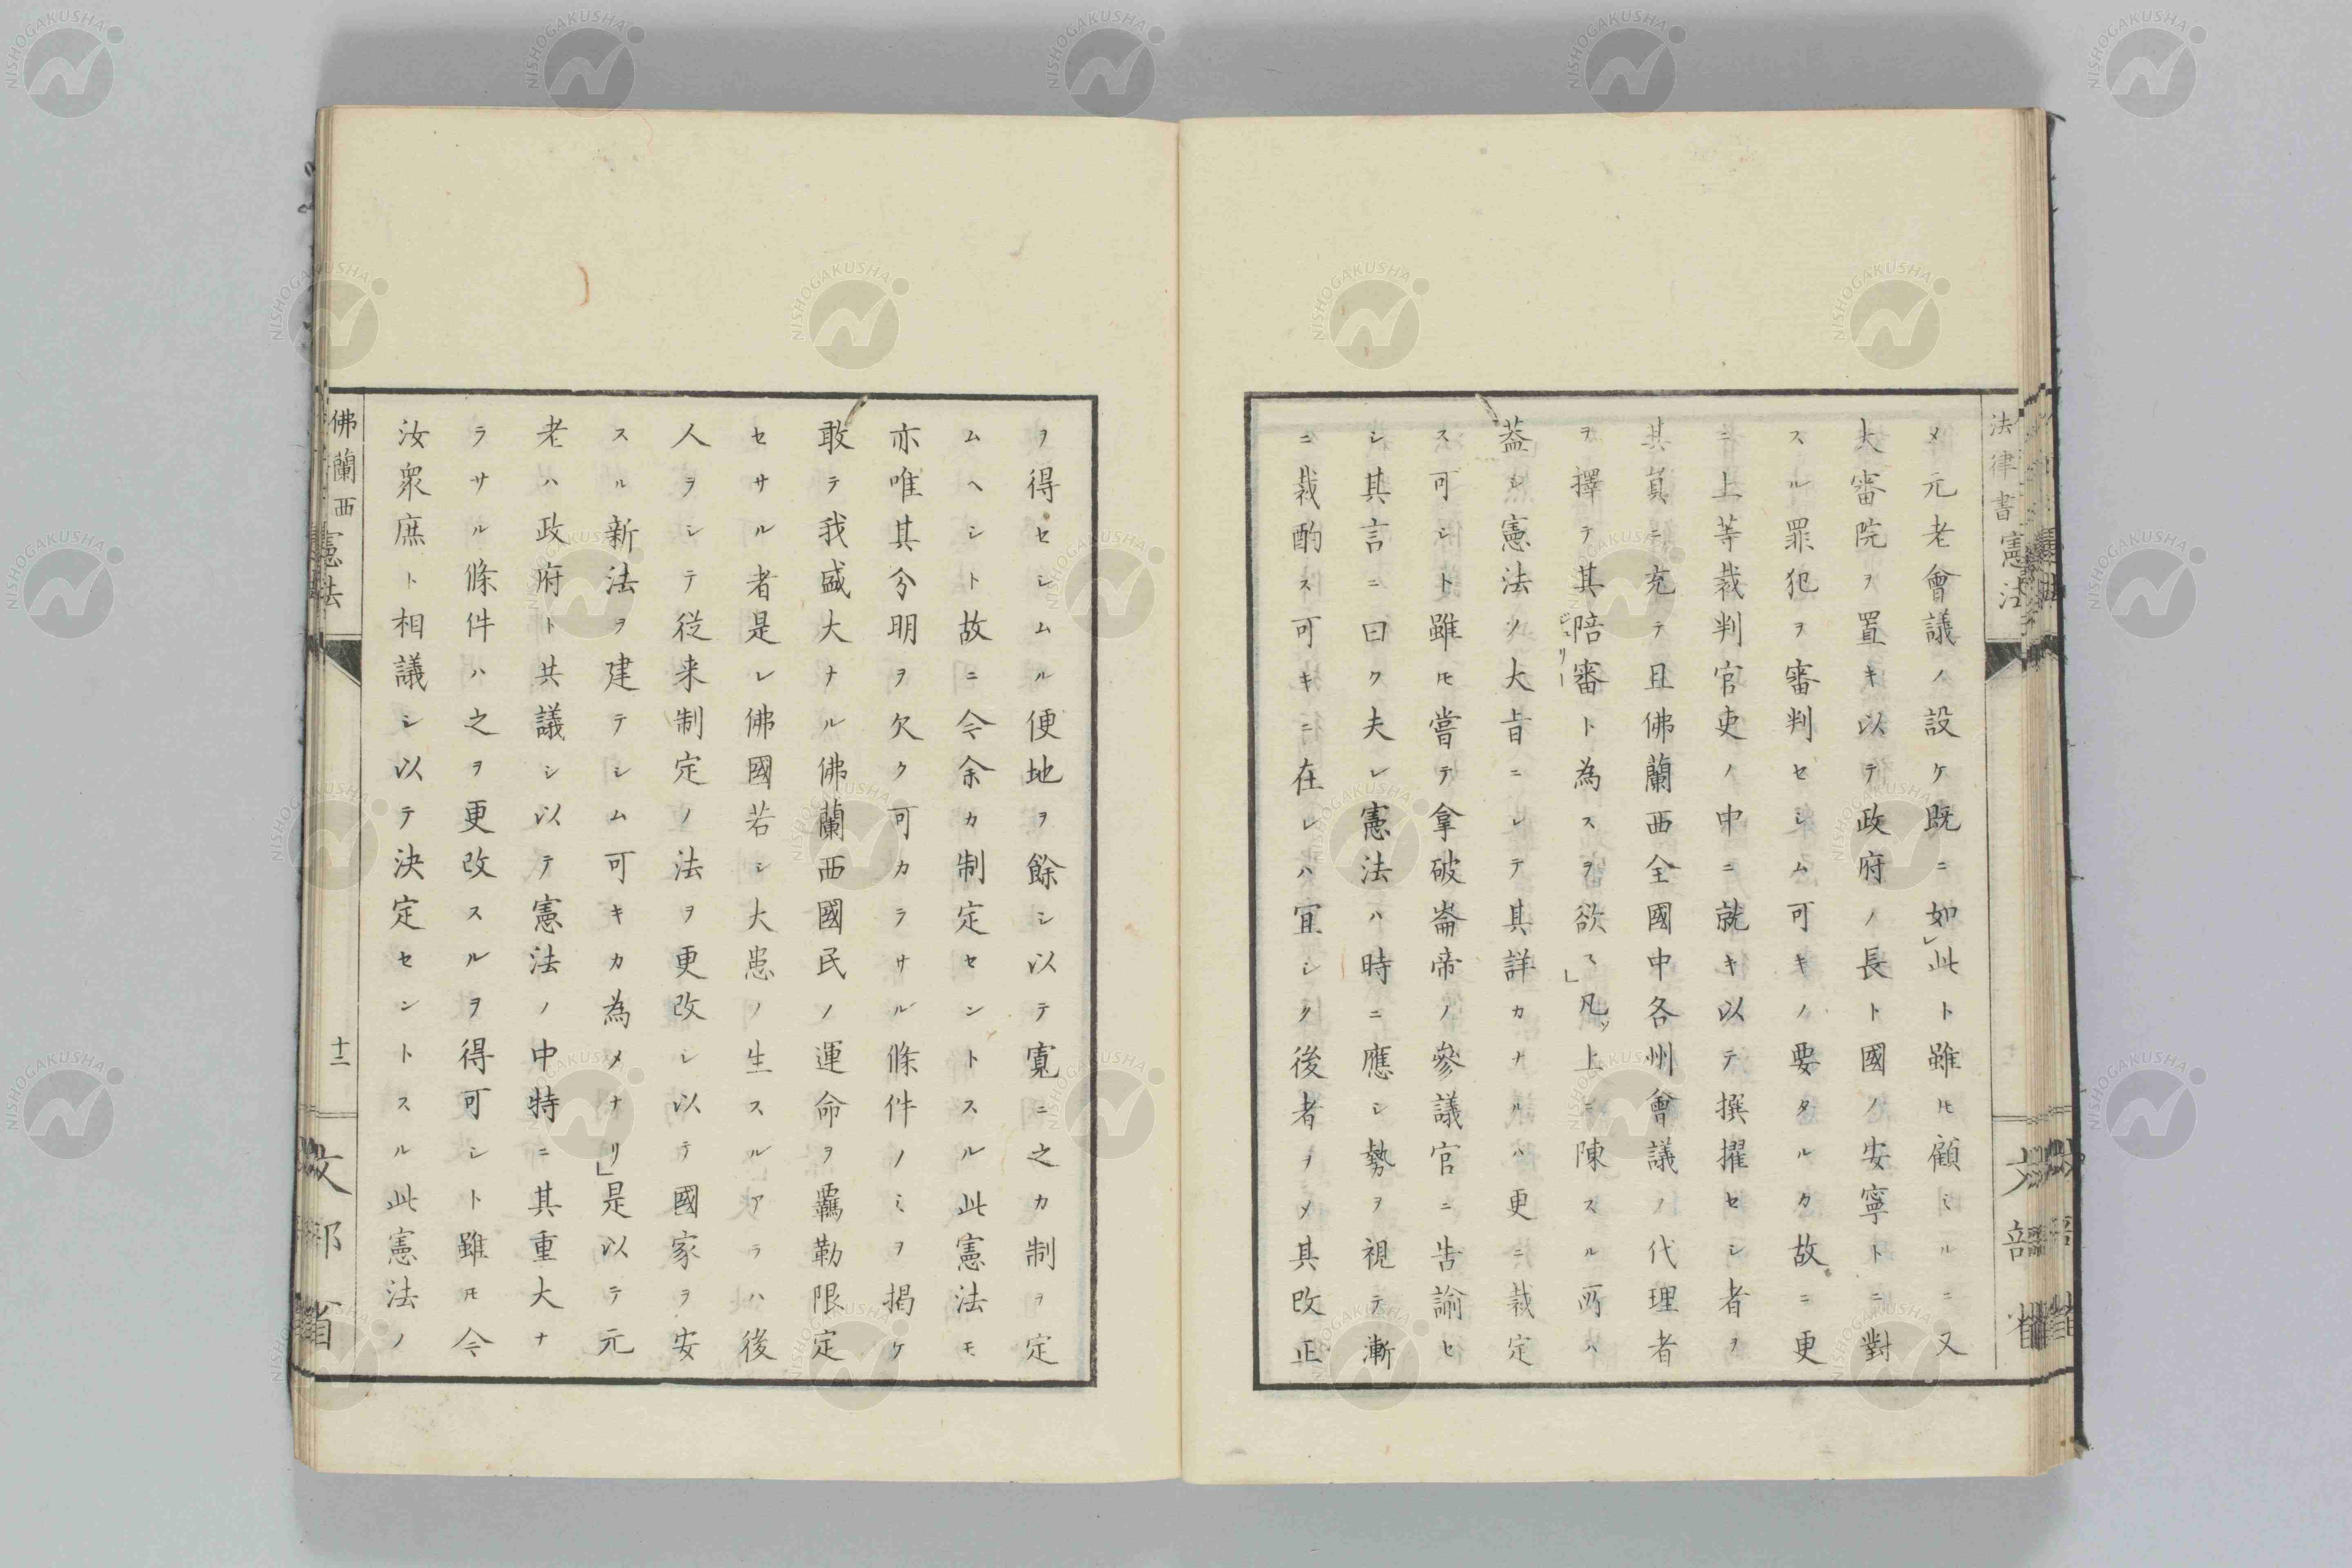 法律書憲法
文部省
メ元老會議ノ設ケ既ニ如レ此ト雖𪜈顧ミルニ又
大審院ヲ置キ以テ政府ノ長ト國ノ安寧トニ對
スル罪犯ヲ審判セシム可キノ要タルカ故ニ更
ニ上等裁判官吏ノ中ニ就キ以テ撰擢セシ者ヲ
其員ニ充テ且佛蘭西全國中各州會議ノ代理者
ヲ擇テ其陪審ト為スヲ欲ス」凡ソ上ニ陳スル所ハ
蓋シ憲法ノ大旨ニシテ其詳カナルハ更ニ裁定
ス可シト雖𪜈嘗テ拿破崙帝ノ參議官ニ告諭セ
シ其言ニ曰ク夫レ憲法ハ時ニ應シ勢ヲ視テ漸
ニ裁酌ス可キニ在レハ宜シク後者ヲメ其改正
ヲ得セシムル便地ヲ餘シ以テ寬ニ之カ制ヲ定
ムヘシト故ニ今余カ制定セントスル此憲法モ
亦唯其分明ヲ欠ク可カラサル條件ノミヲ掲ケ
敢テ我盛大ナル佛蘭西國民ノ運命ヲ羈勒限定
セサル者是レ佛國若シ大患ノ生スルアラハ後
人ヲシテ從来制定ノ法ヲ更改シ以テ國家ヲ安
スル新法ヲ建テシム可キカ為メナリ」是以テ元
老ハ政府ト共議シ以テ憲法ノ中特ニ其重大ナ
ラサル條件ハ之ヲ更改スルヲ得可シト雖モ今
汝衆庶ト相議シ以テ決定セントスル此憲法ノ
佛蘭西憲法
十二
文部省
NISHOGAKUSHA